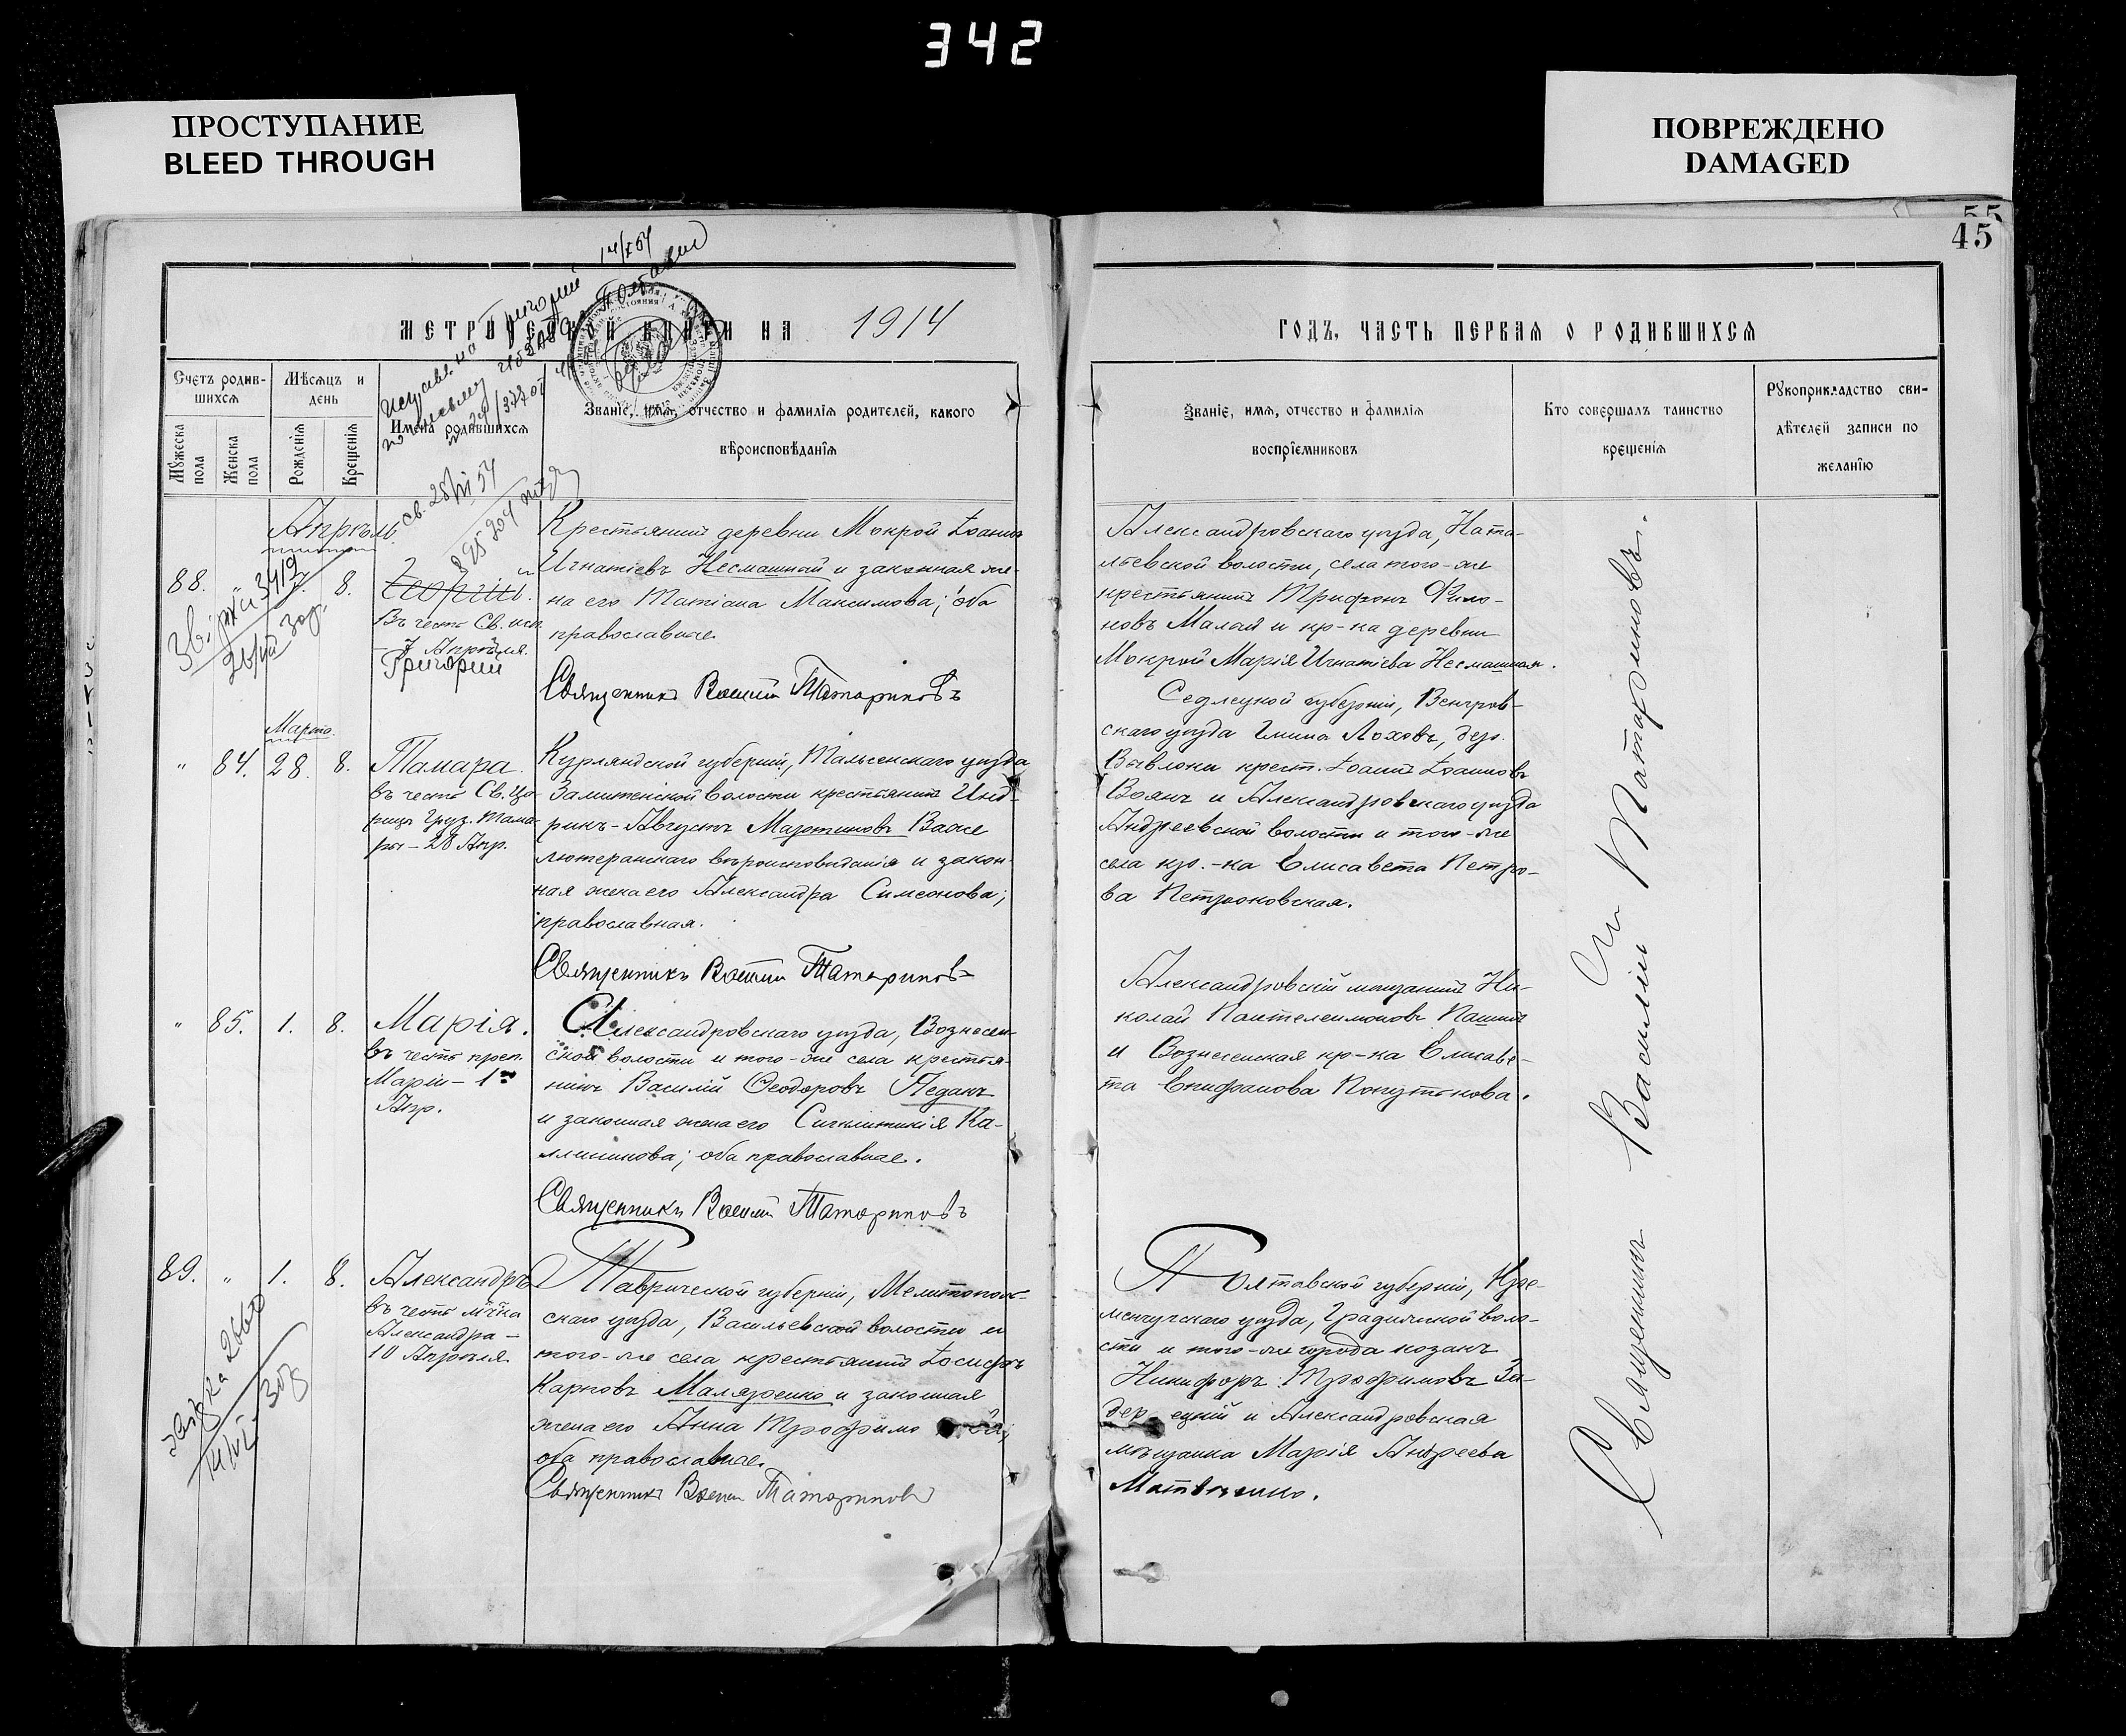 342
ПРОСТУПАНИЕ
BLEED THROUGH
ПОВРЕЖДЕНО
DAMAGED
55
45
МЕТРИЧЕСКОЙ КНИГИ НА 1914
ГОДЪ, ЧАСТЬ ПЕРВАЯ О РОДИВШИХСЯ
Счетъ родив-
шихся
Мужеска пола
Женска пола
Мѣсяцъ и
день
Рожденія
Крещенія
Имена родившихся
Званіе, имя, отчество и фамилія родителей, какого
вѣроисповѣданія
Званіе, имя, отчество и фамилія
воспріемниковъ
Кто совершалъ таинство
крещенія
Рукоприкладство сви-
дѣтелей записи по
желанію
Апрѣль.
88. " 8.
Георгій.
Въ честь Св. исп.
– 7 Апрѣля.
Григорий
Крестьянинъ деревни Мокрой Іоаннъ
Игнатіевъ Несмашный и законная же-
на его Татіана Максимова; оба
православные.
Священникъ Василій Татариновъ
Александровскаго уѣзда, Ната-
льевской волости, села того-же
крестьянинъ Трифонъ Фило-
новъ Малый и кр-ка деревни
Мокрой Марія Игнатіева Несмашная.
Марта.
" 84. 28. 8.
Тамара
въ честь Св. Ца-
рицы Груз. Тама-
ры – 28 Апр.
Курляндской губерніи, Тальсенскаго уѣзда
волости крестьянинъ Инд-
рикъ-Августъ Мартиновъ
лютеранскаго вѣроисповѣданія и закон-
ная жена его Александра Симеонова;
православная.
Священникъ Василій Татариновъ
Седлецкой губерніи, Венгров-
скаго уѣзда гмина Лоховъ, дер.
крест. Іоаннъ Іоанновъ
и Александровскаго уѣзда
Андреевской волости и того-же
села кр.-ка Елисавета Петро-
ва Петроковская.
" 85. 1. 8.
Марія.
въ честь преп.
Маріи – 1го
Апр.
Александровскаго уѣзда, Вознесен-
ской волости и того-же села крестья-
нинъ Василій Ѳеодоровъ Педанъ
и законная жена его Сигклитикія Ка-
линикова; оба православные.
Священникъ Василій Татариновъ
Александровскій мѣщанинъ Ни-
колай Пантелеимоновъ Пашинъ
и Вознесенская кр-ка Елисаве-
та Епифанова Попутькова.
89. " 1. 8.
Александръ
въ честь мч̃ка
Александра –
10 Апрѣля.
Таврической губерніи, Мелитополь-
скаго уѣзда, Васильевской волости и
того-же села крестьянинъ Іосифъ
Карповъ Маляренко и законная
жена его Анна Трофимо
оба православные.
Священникъ Василій Татариновъ
Полтавской губерніи, Кре-
менчугскаго уѣзда, Градижской воло-
сти и того-же города козакъ
Никифоръ Трофимовъ
и Александровская
мѣщанка Марія Андреева
Матвѣенко.
Священникъ Василій Татариновъ.